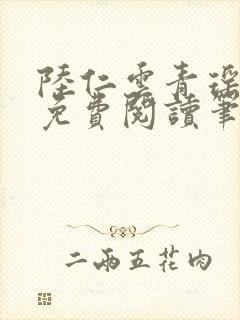 陸仁雲青瑶
免費閱讀筆
二兩五花肉